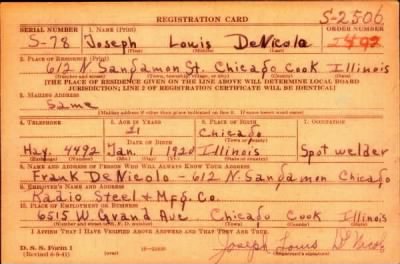 REGISTRATION CARD
S-2506
SERIAL NUMBER 1. NAME (Print) ORDER NUMBER
S-78 Joseph Louis DeNicolo 2492
(First) (Middle) (Last)
2. PLACE OF RESIDENCE (Print)
612 N. Sangamon St. Chicago Cook Illinois
(Number and street) (Town, township, village, or city) (County) (State)
[THE PLACE OF RESIDENCE GIVEN ON THE LINE ABOVE WILL DETERMINE LOCAL BOARD
JURISDICTION; LINE 2 OF REGISTRATION CERTIFICATE WILL BE IDENTICAL]
3. MAILING ADDRESS
Same
[Mailing address if other than place indicated on line 2. If same insert word same]
4. TELEPHONE 5. AGE IN YEARS 6. PLACE OF BIRTH 7. OCCUPATION
21 Chicago
DATE OF BIRTH (Town or county)
Hay. 4492 Jan. 1 1920 Illinois Spot welder
(Mo.) (Day) (Yr.) (State or country)
8. NAME AND ADDRESS OF PERSON WHO WILL ALWAYS KNOW YOUR ADDRESS
Frank DeNicolo - 612 N. Sangamon Chicago
9. EMPLOYER'S NAME AND ADDRESS
Radio Steel & Mfg. Co.
10. PLACE OF EMPLOYMENT OR BUSINESS
6515 W. Grand Ave Chicago Cook Illinois
(Number and street or R. F. D. number) (Town) (County) (State)
I AFFIRM THAT I HAVE VERIFIED ABOVE ANSWERS AND THAT THEY ARE TRUE.
D. S. S. Form 1
(Revised 6-9-41) (over) Joseph Louis